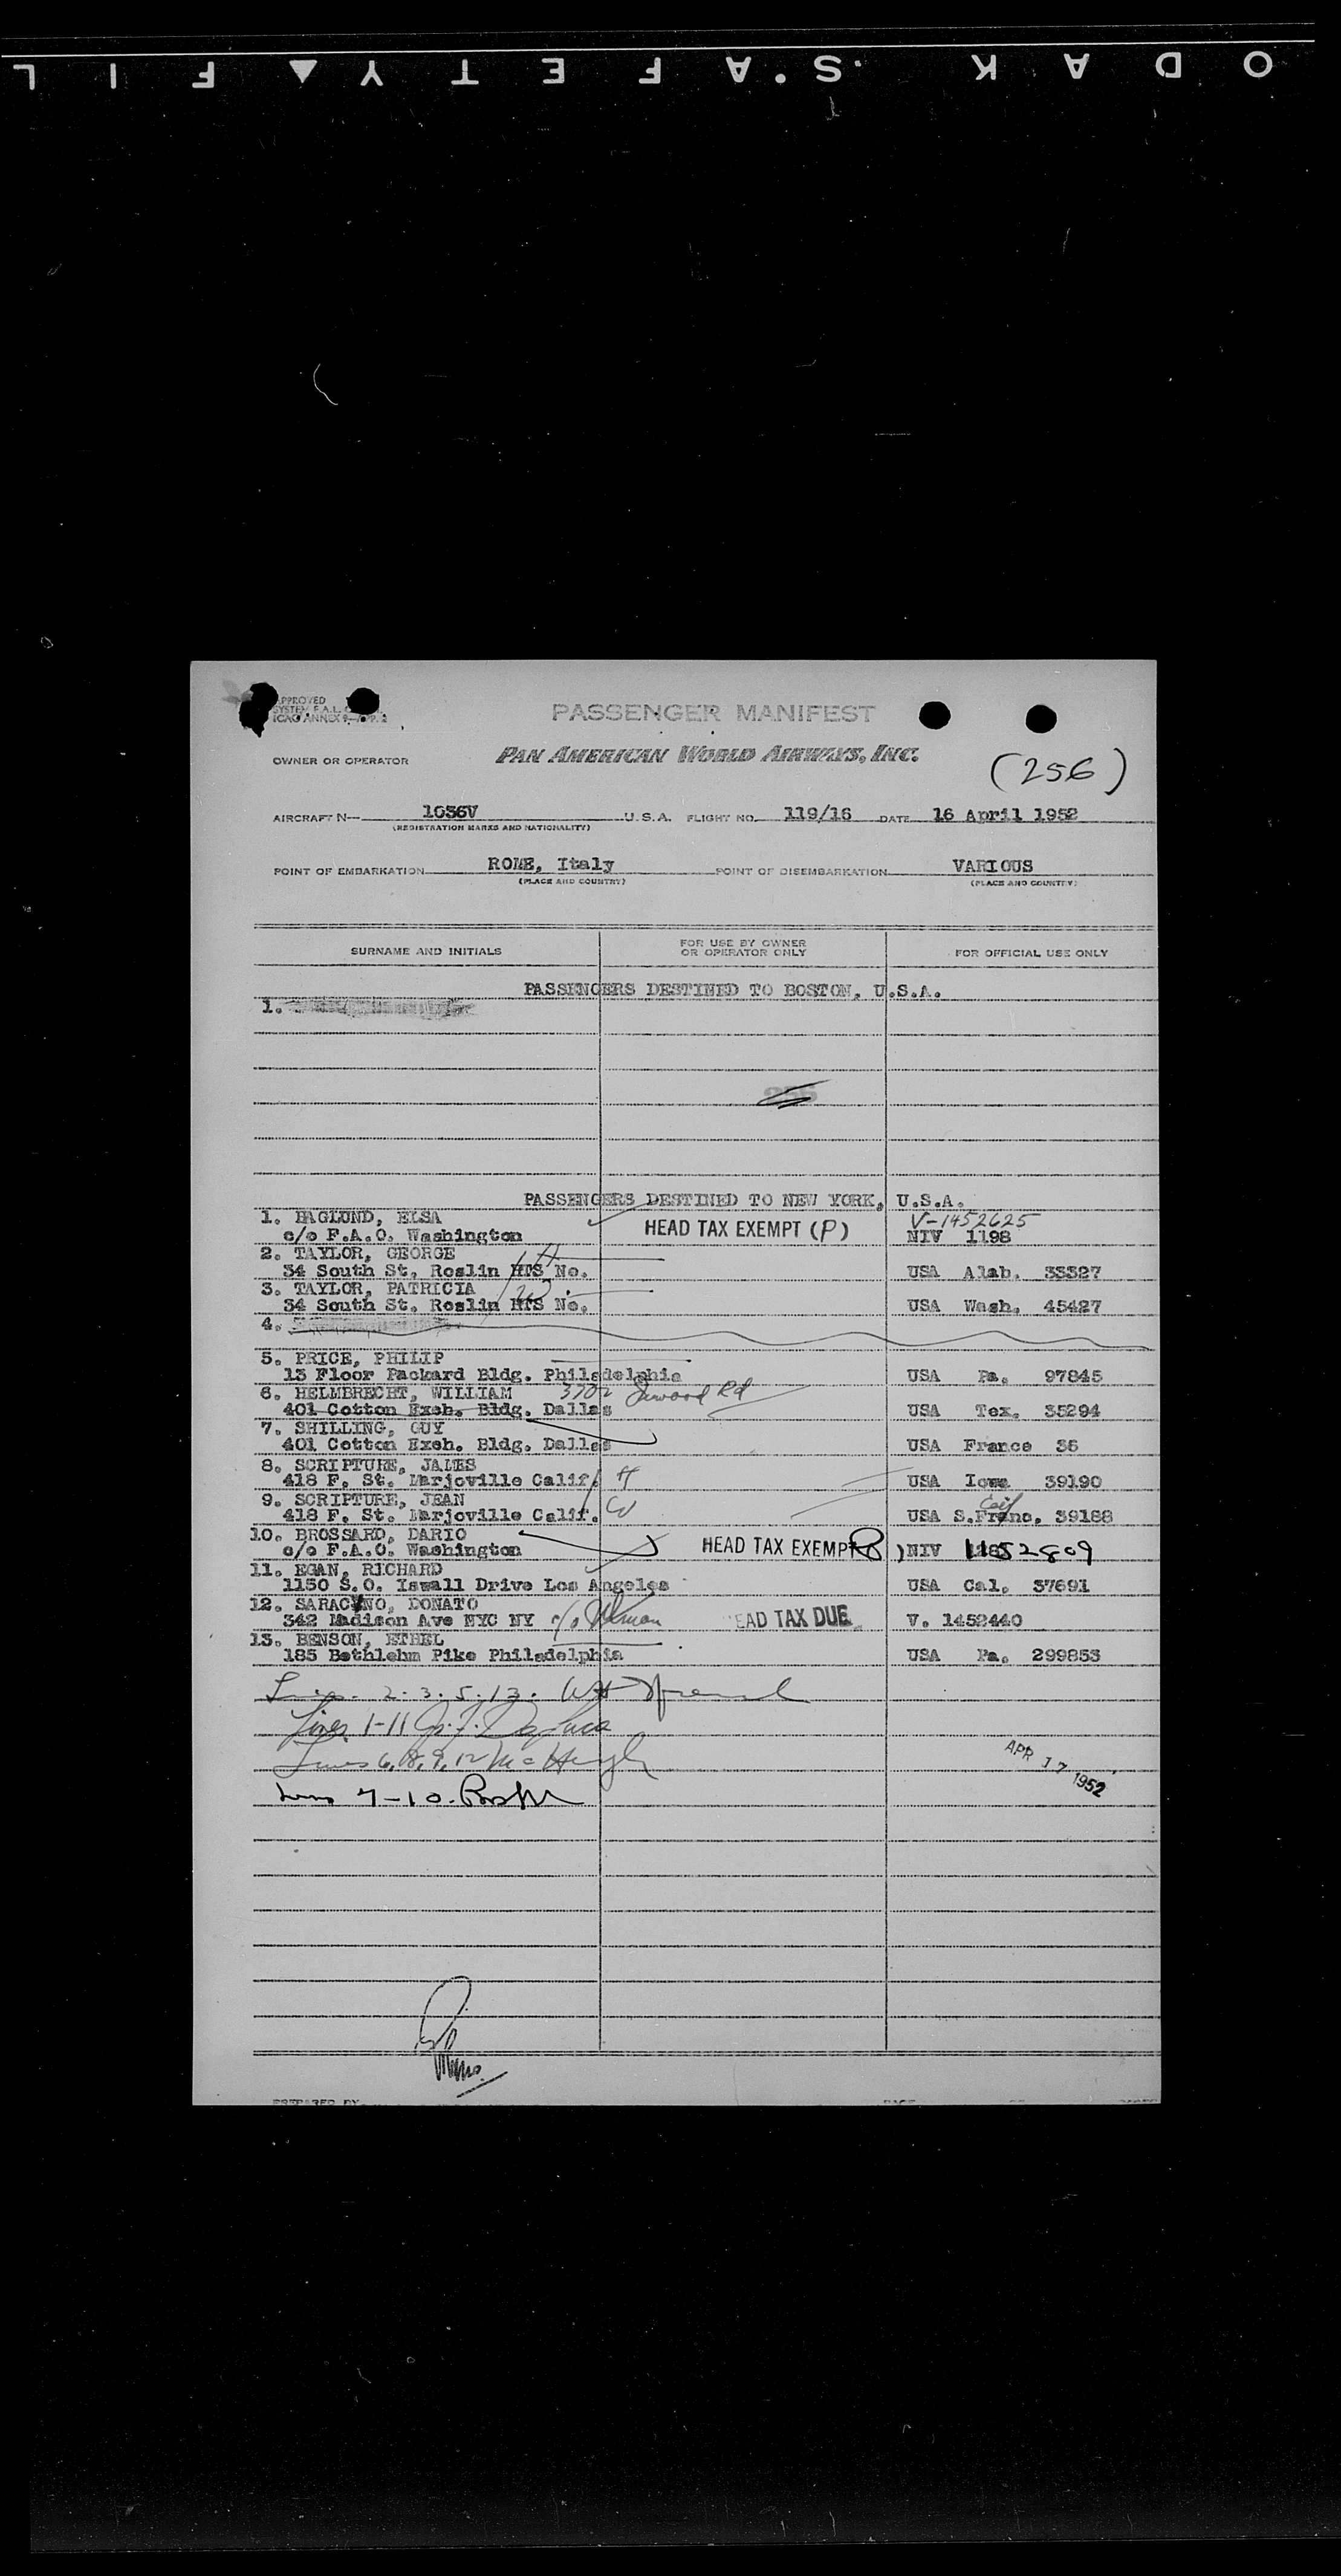 KODAK · SAFETY ▲ FIL
APPROVED
SYSTEM F.A.L.
ICAO ANNEX 9
PASSENGER MANIFEST
OWNER OR OPERATOR PAN AMERICAN WORLD AIRWAYS, INC.
(256)
AIRCRAFT N— 1036V U.S.A. FLIGHT NO. 119/16 DATE 16 April 1952
(REGISTRATION MARKS AND NATIONALITY)
POINT OF EMBARKATION ROME, Italy POINT OF DISEMBARKATION VARIOUS
(PLACE AND COUNTRY) (PLACE AND COUNTRY)
SURNAME AND INITIALS FOR USE BY OWNER OR OPERATOR ONLY FOR OFFICIAL USE ONLY
PASSENGERS DESTINED TO BOSTON, U.S.A.
1.
PASSENGERS DESTINED TO NEW YORK, U.S.A.
1. HAGLUND, ELSA V-1452625
c/o F.A.O. Washington HEAD TAX EXEMPT (P) NIV 1198
2. TAYLOR, GEORGE H
34 South St, Roslin HTS No. USA Alab. 33327
3. TAYLOR, PATRICIA W
34 South St. Roslin HTS No. USA Wash. 45427
4.
5. PRICE, PHILIP
13 Floor Packard Bldg. Philadelphia USA Pa. 97845
6. HELMBRECHT, WILLIAM 3702 Rd
401 Cotton Exch. Bldg. Dallas USA Tex. 35294
7. SHILLING, GUY
401 Cotton Exch. Bldg. Dallas USA France 36
8. SCRIPTURE, JAMES
418 F. St. Marjoville Calif. H USA Iowa 39190
9. SCRIPTURE, JEAN W
418 F. St. Marjoville Calif. USA S.Franc. 39188
10. BROSSARD, DARIO
c/o F.A.O. Washington HEAD TAX EXEMPT (P) NIV 1152809
11. EGAN, RICHARD
1150 S.O. Iswall Drive Los Angeles USA Cal. 37691
12. SARACYNO, DONATO
342 Madison Ave NYC NY c/o HEAD TAX DUE V. 1452440
13. BENSON, ETHEL
185 Bethlehm Pike Philadelphia USA Pa. 299853
Lines 2.3.5.13.
Lines 1-11
Lines 6,8,9,12 McHugh
APR 17 1952
Lines 7-10.
PREPARED BY